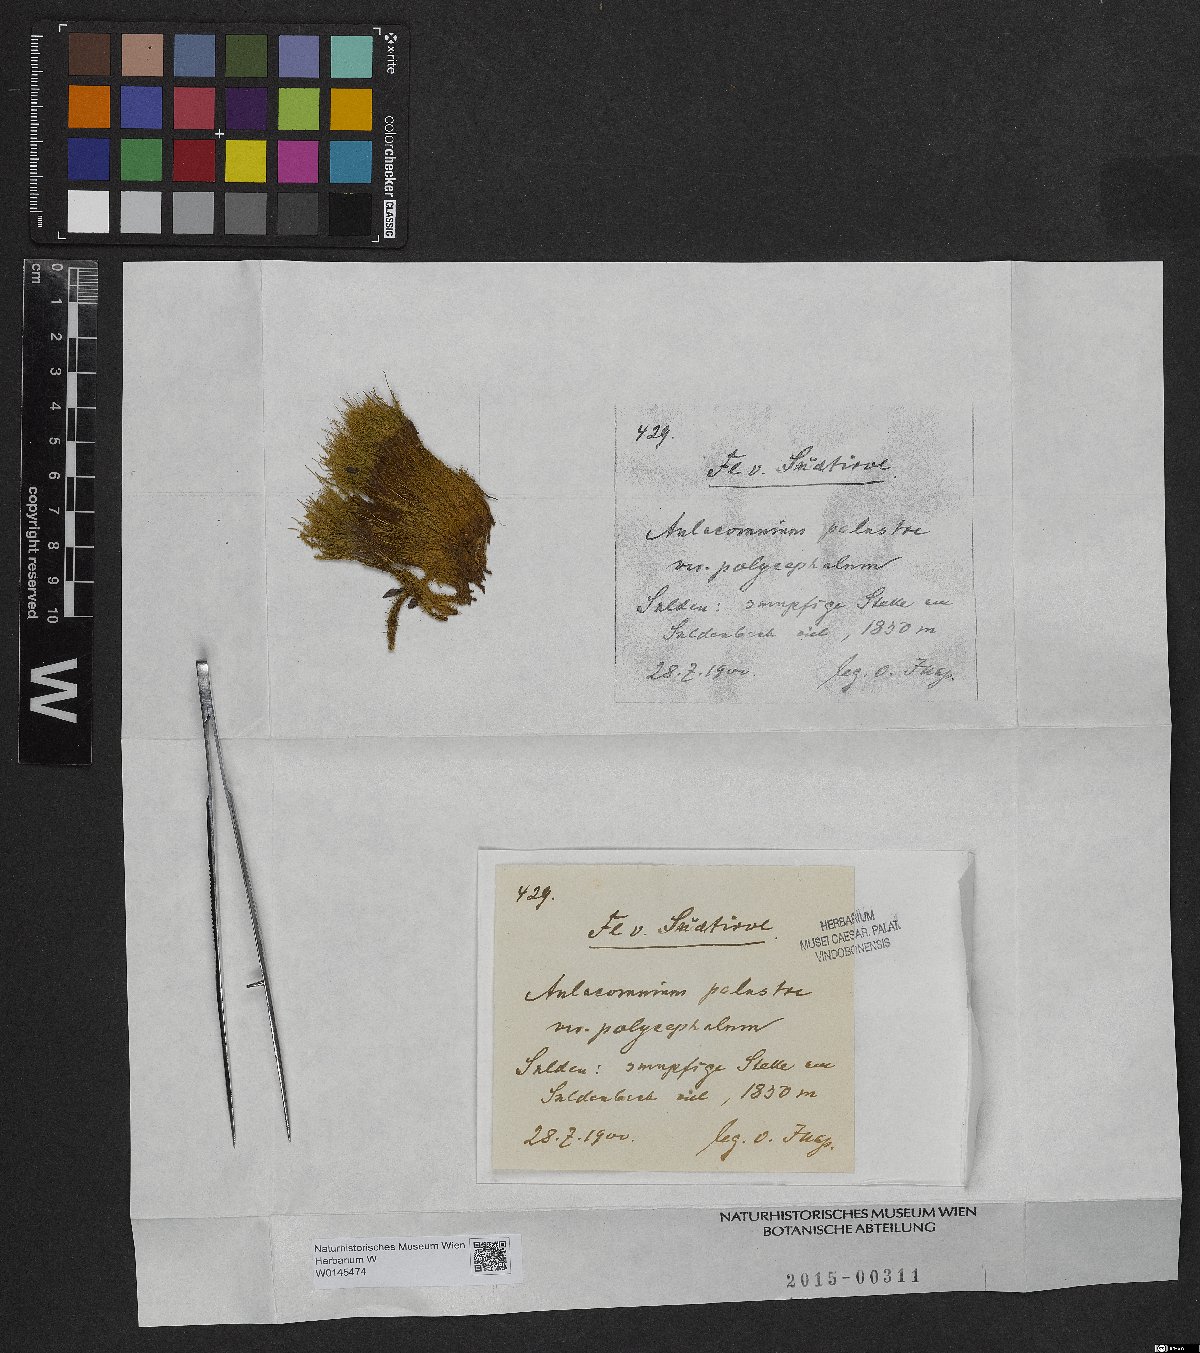 x-rite
colorchecker CLASSIC
mm
cm
0 1 2 3 4 5 6 7 8 9 10
copyright reserved
W
429.
Fl v. Südtirol.
Aulacomnium palustre
var. polycephalum
Sulden: sumpfige Stelle am
Suldenbach viel, 1850 m
28.7.1900. leg. v.
429.
Fl v. Südtirol.
Aulacomnium palustre
var. polycephalum
Sulden: sumpfige Stelle am
Suldenbach viel, 1850 m
28.7.1900. leg. v.
HERBARIUM
MUSEI CAESAR. PALAT.
VINDOBONENSIS
NATURHISTORISCHES MUSEUM WIEN
BOTANISCHE ABTEILUNG
Naturhistorisches Museum Wien
Herbarium W
W0145474
2015-00311